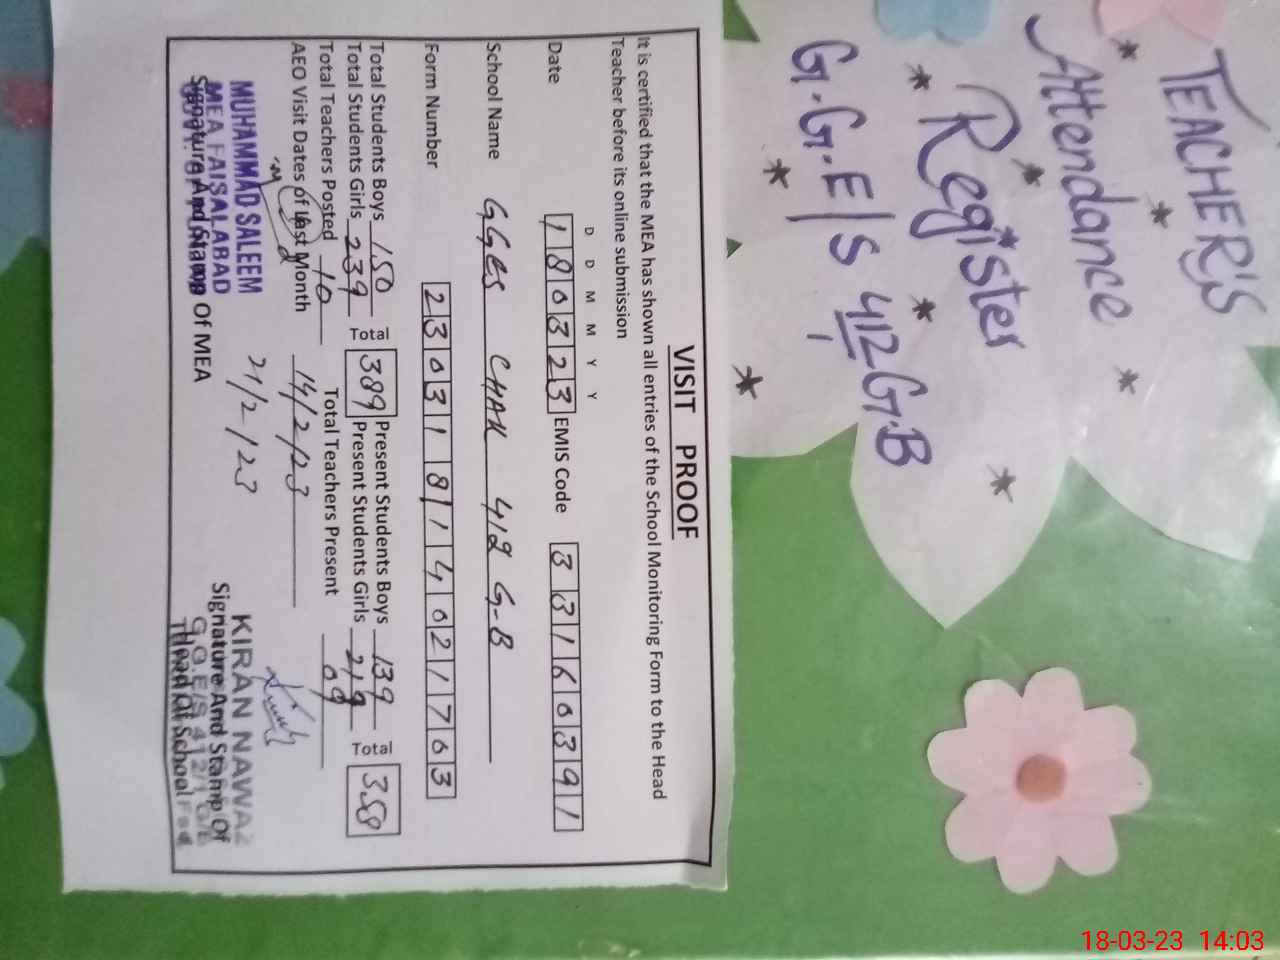 TEACHER'S
Attendance
Register
G.G.E/S 412 G.B
VISIT PROOF
It is certified that the MEA has shown all entries of the School Monitoring Form to the Head
Teacher before its online submission
D D M M Y Y
Date 180323 EMIS Code 33160391
School Name GGES CHAK 412 G-B
Form Number 230318114021703
Total Students Boys 150 Present Students Boys 139
Total Students Girls 239 Total 389 Present Students Girls 219 Total 358
Total Teachers Posted 10 Total Teachers Present 09
AEO Visit Dates of last Month 14/2/23
21/2/23
MUHAMMAD SALEEM
MEA FAISALABAD
Signature And Stamp Of MEA
KIRAN NAWAZ
Signature And Stamp Of
G.G.E/S 412/1 G/B
Head Of School
18-03-23 14:03